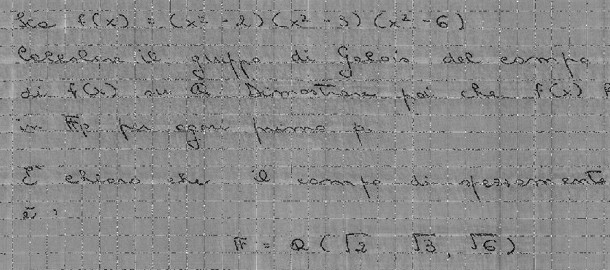 Sia f(x) = (x² - 2)(x² - 3)(x² - 6)
Calcolare il gruppo di Galois del campo
di f(x) su Q. Dimostrare poi che f(x)
in Fp per ogni primo p.
E' chiaro che il campo di spezzamento
è:
F = Q(√2 √3, √6)